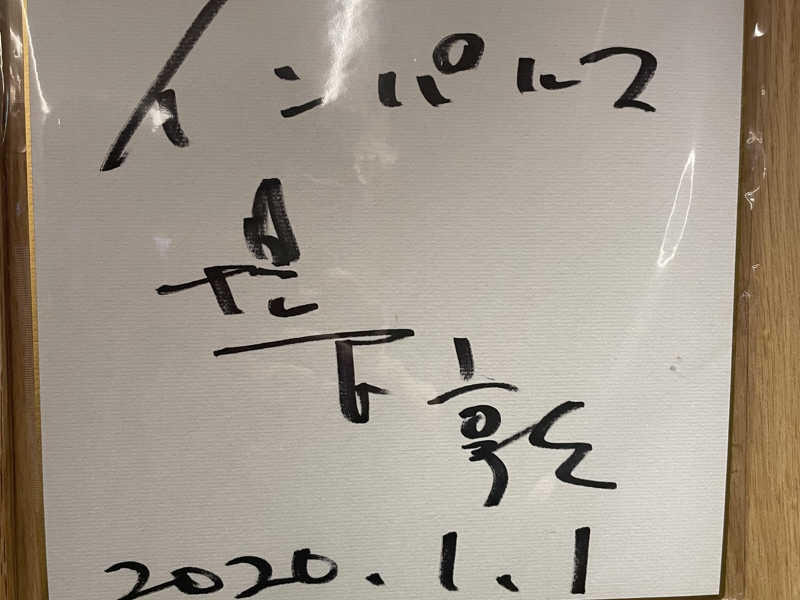 インパルス
堤下敦
2020.1.1